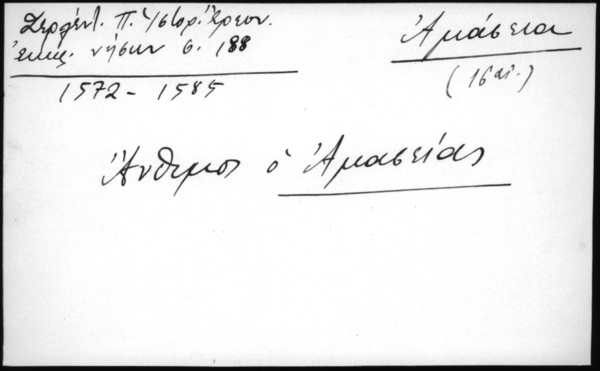 Ζερλέντ. Π. Ἱστορ. Ἔρευν.
ἐκκλ. νήσων σ. 188
1572 - 1585
Ἀμάσεια
(16 αἰ.)
Ἄνθιμος ὁ Ἀμασείας